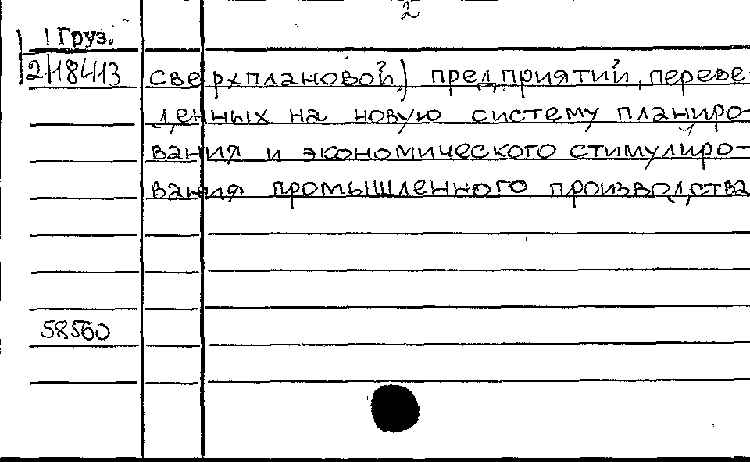 2
Груз.
2-18413
сверхплановой) предприятий, переве-
денных на новую систему планиро-
вания и экономического стимулиро-
вания промышленного производства
58560